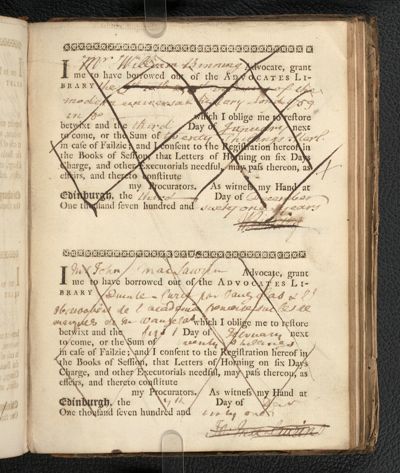 I Mr William Binning Advocate, grant
me to have borrowed out of the ADVOCATES LI-
BRARY the of the
modern universal history
in 8° which I oblige me to restore
betwixt and the third Day of January next
to come, or the Sum of twenty
in case of Failzie; and I consent to the Registration hereof in
the Books of Session, that Letters of Horning on six Days
Charge, and other Executorials needful, may pass thereon, as
effeirs, and thereto constitute
my Procurators. As witness my Hand at
Edinburgh, the third Day of December
One thousand seven hundred and sixty one years
I Mr John Maclaurin Advocate, grant
me to have borrowed out of the ADVOCATES LI-
BRARY Quinte Curce par Vaugelas
de l'academie
de which I oblige me to restore
betwixt and the first Day of February next
to come, or the Sum of twenty
in case of Failzie; and I consent to the Registration hereof in
the Books of Session, that Letters of Horning on six Days
Charge, and other Executorials needful, may pass thereon, as
effeirs, and thereto constitute
my Procurators. As witness my Hand at
Edinburgh, the Day of
One thousand seven hundred and sixty one